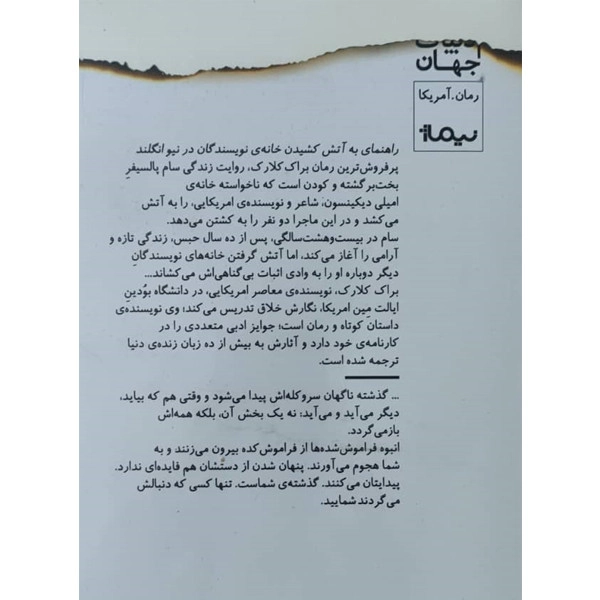 ادبیات
جهان
رمان.آمریکا
نیماژ
راهنمای به آتش کشیدن خانه‌ی نویسندگان در نیو انگلند
پرفروش‌ترین رمان براک کلارک، روایت زندگی سام پالسیفرِ
بخت‌برگشته و کودن است که ناخواسته خانه‌ی
امیلی دیکینسون، شاعر و نویسنده‌ی امریکایی، را به آتش
می‌کشد و در این ماجرا دو نفر را به کشتن می‌دهد.
سام در بیست‌وهشت‌سالگی، پس از ده سال حبس، زندگی تازه و
آرامی را آغاز می‌کند، اما آتش گرفتن خانه‌های نویسندگانِ
دیگر دوباره او را به وادی اثبات بی‌گناهی‌اش می‌کشاند...
براک کلارک، نویسنده‌ی معاصر امریکایی، در دانشگاه بوُدینِ
ایالت مِین امریکا، نگارش خلاق تدریس می‌کند؛ وی نویسنده‌ی
داستان کوتاه و رمان است؛ جوایز ادبی متعددی را در
کارنامه‌ی خود دارد و آثارش به بیش از ده زبان زنده‌ی دنیا
ترجمه شده است.
... گذشته ناگهان سروکله‌اش پیدا می‌شود و وقتی هم که بیاید،
دیگر می‌آید و می‌آید؛ نه یک بخش آن، بلکه همه‌اش
بازمی‌گردد.
انبوه فراموش‌شده‌ها از فراموش‌کده بیرون می‌زنند و به
شما هجوم می‌آورند. پنهان شدن از دستشان هم فایده‌ای ندارد.
پیدایتان می‌کنند. گذشته‌ی شماست. تنها کسی که دنبالش
می‌گردند شمایید.